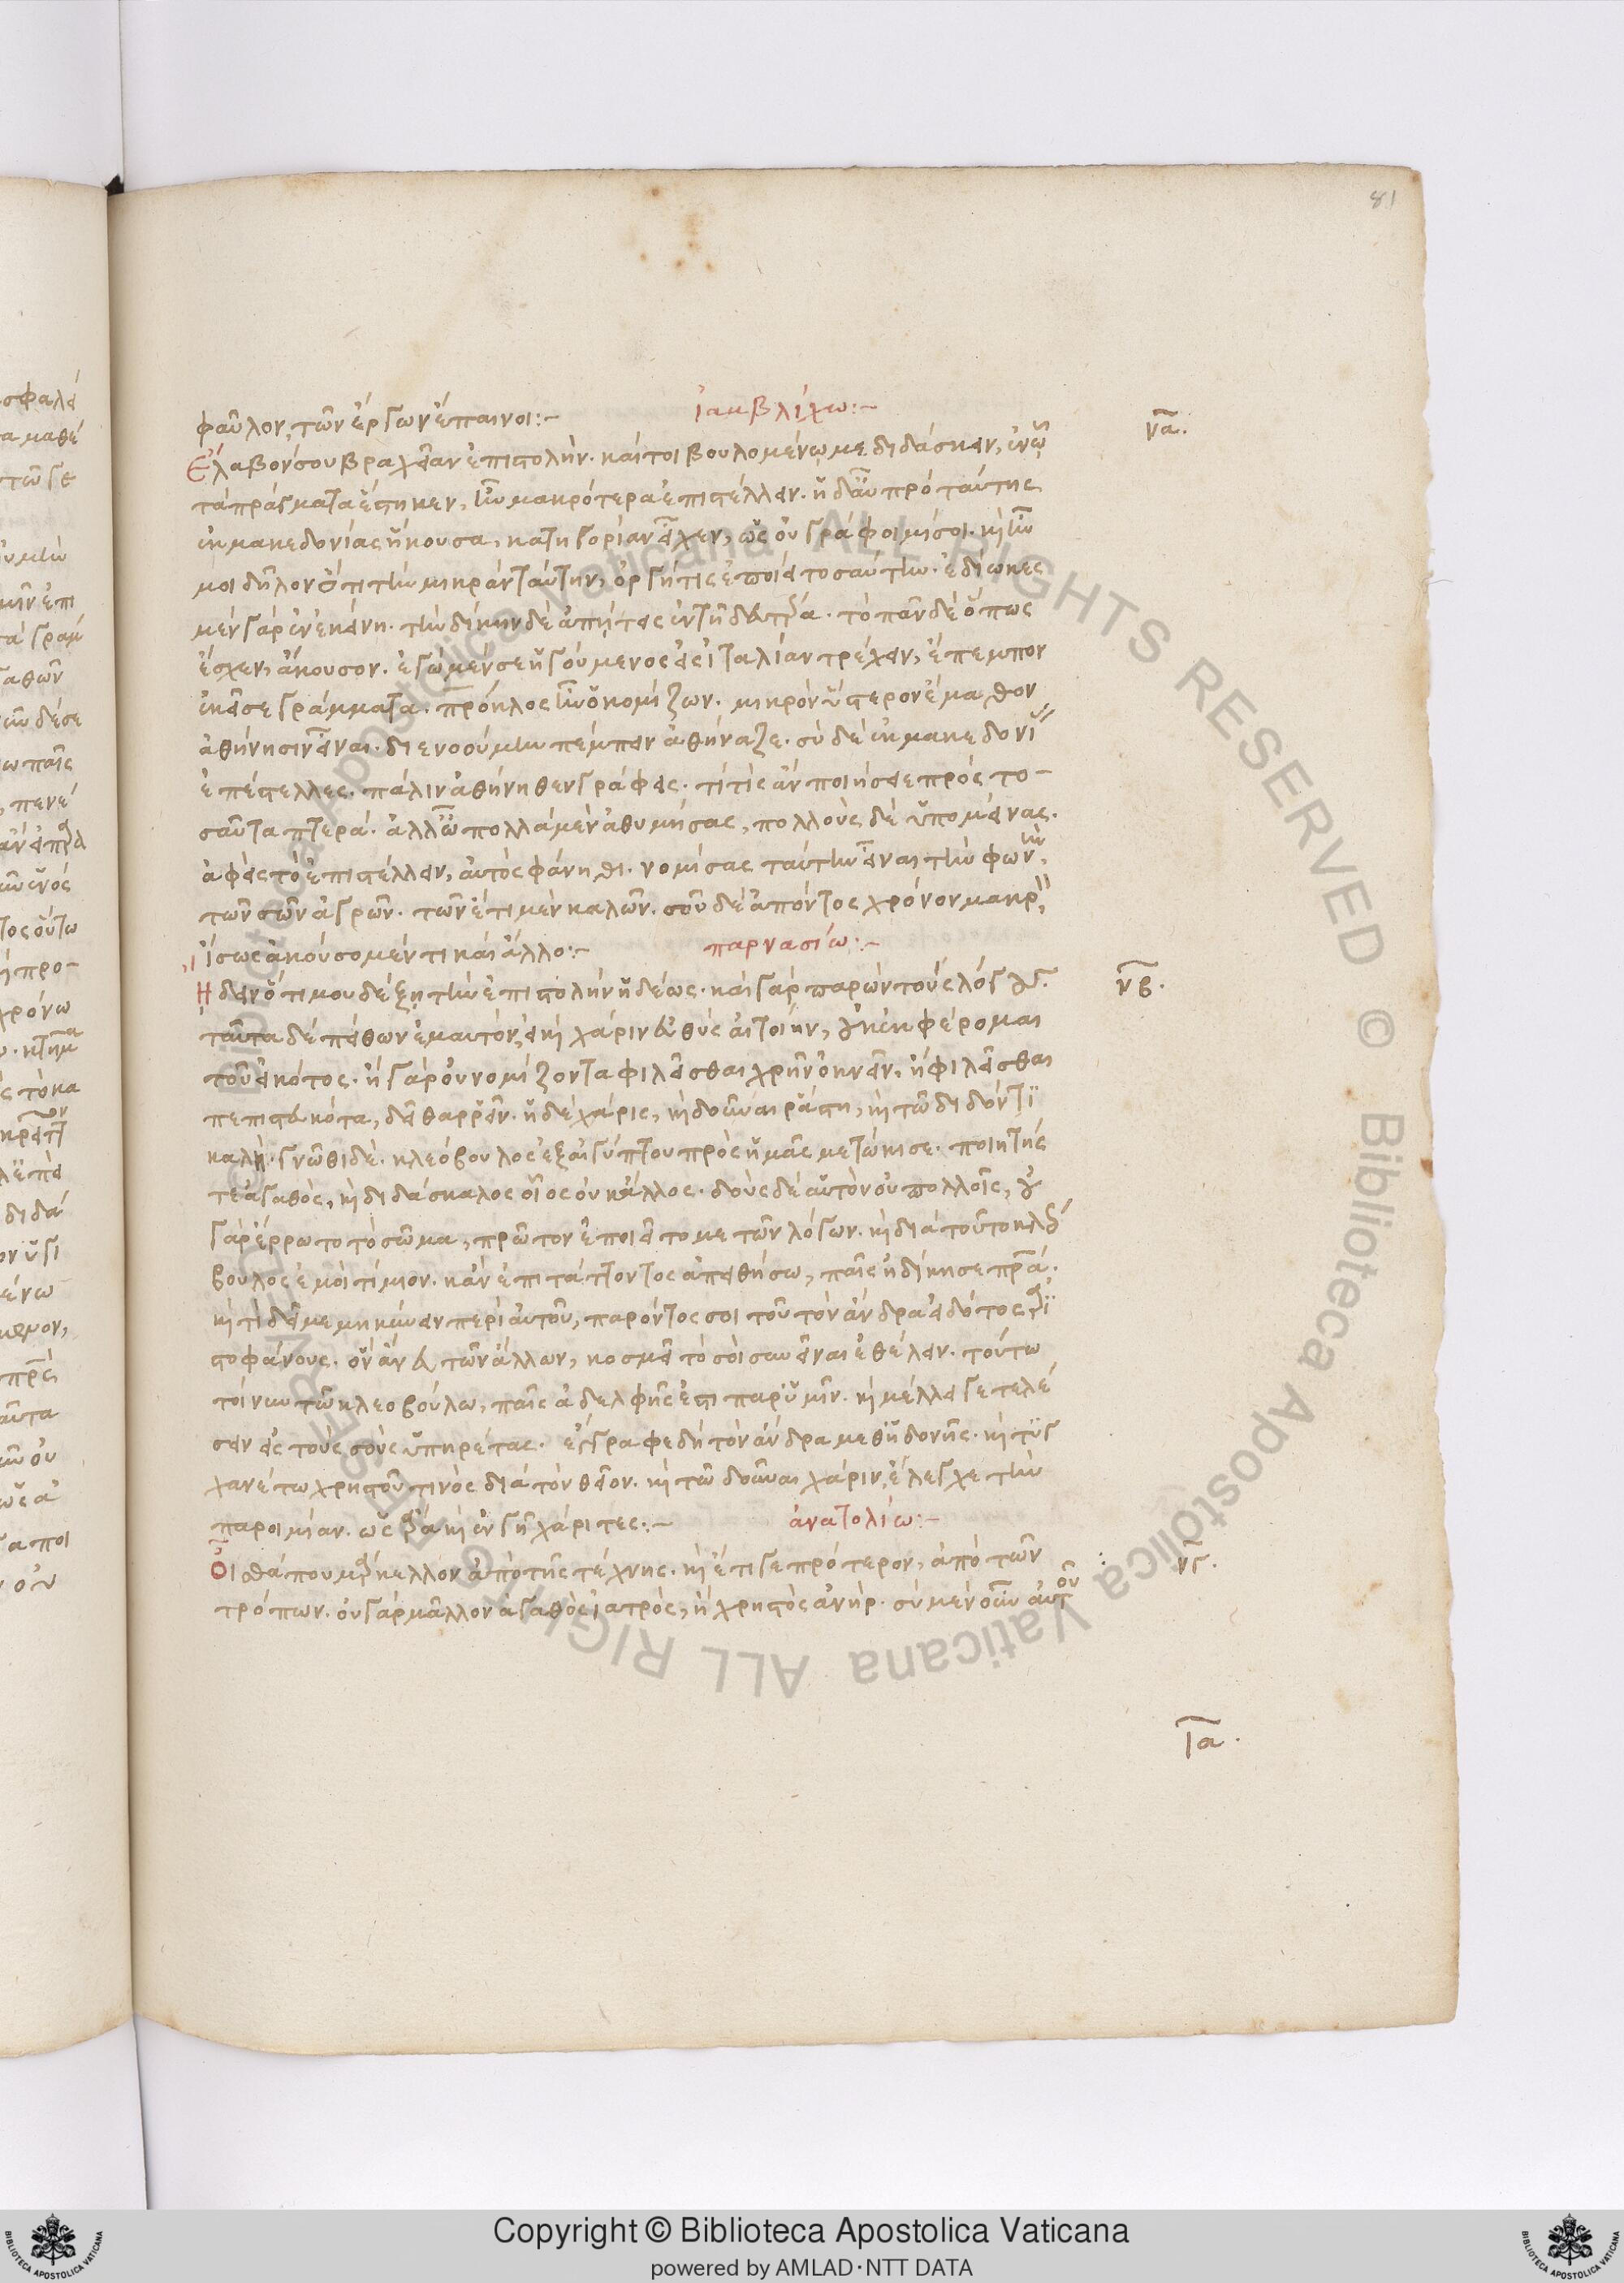 81
φαῦλον, τῶν ἔργων ἔπαινοι:- ἰαμβλίχω:-
να.
Ἔλαβόν σου βραχεῖαν ἐπιστολὴν. καίτοι βουλομένῳ με διδάσκειν, ἐν ᾧ
τὰ πράγματα ἕστηκεν, ἦν μακρότερα ἐπιστέλλειν. ἡ δ' αὖ πρὸ ταύτης
ἐκ μακεδονίας ἥκουσα, κατηγορίαν εἶχεν, ὡς οὐ γράφοιμί σοι. καὶ ἦν
μοι δῆλον ὅτι τὴν μικρὰν ταύτην, ὀργή τις ἐποίει τοσαύτην. ἐδίωκες
μὲν γὰρ ἐν ἐκείνη. τὴν δίκην δὲ ἀπήτεις ἐν τῆ δευτέρα. τὸ πᾶν δὲ ὅπως
ἔσχεν, ἄκουσον. ἐγὼ μέν σε ἡγούμενος εἰς ἰταλίαν τρέχειν, ἔπεμπον
ἐκεῖσε γράμματα. πρόκλος ἦν ὁ κομίζων. μικρὸν ὕστερον ἔμαθον
ἀθήνησιν εἶναι. διενοούμην πέμπειν ἀθήναζε. σὺ δὲ ἐκ μακεδονί
ἐπέστελλες. πάλιν ἀθήνηθεν γράφεις. τί τις ἂν ποιήσειε πρὸς το-
σαῦτα πτερά. ἀλλ' ὦ πολλὰ μὲν ἀθυμήσας, πολλοὺς δὲ ὑπομείνας.
ἀφεὶς τὸ ἐπιστέλλειν, αὐτὸς φάνηθι. νομίσας ταύτην εἶναι τὴν φωνὴν,
τῶν σῶν ἀγρῶν. τῶν ἔτι μὲν καλῶν. σοῦ δὲ ἀπόντος χρόνον μακρ
ἴσως ἀκούσομέν τι καὶ ἄλλο:- παρνασίω:-
νβ.
Ἤδειν ὅτι μου δέξῃ τὴν ἐπιστολὴν ἡδέως. καὶ γὰρ παρὼν τοὺς λόγους.
ταῦτα δὲ πείθων ἐμαυτόν, εἰ καὶ χάριν εὐθὺς αἰτοίην, οὐκ ἐκφέρομαι
τοῦ εἰκότος. ἢ γὰρ οὐ νομίζοντα φιλεῖσθαι χρῆν ὀκνεῖν, ἢ φιλεῖσθαι
πεπιστευκότα, δεῖ θαρρεῖν. ἡ δὲ χάρις, καὶ δοῦναι ῥάστη, καὶ τῶ διδόντι
καλὴ. γνῶθι δέ. κλεόβουλος ἐξ αἰγύπτου πρὸς ἡμᾶς μετώκισε. ποιητής
τε ἀγαθὸς, καὶ διδάσκαλος οἷος οὐκ ἄλλος. δοὺς δὲ αὑτὸν οὐ πολλοῖς, οὐ
γὰρ ἔρρωτο τὸ σῶμα, πρῶτον ἐποιεῖτο με τῶν λόγων. καὶ διὰ τοῦτο κλεό
βουλος ἐμοὶ τίμιον. κἂν ἐπιτάττοντος ἀπειθήσω, παῖς ἠδίκησε πατέρα.
καὶ τί δεῖ με μηκύνειν περὶ αὐτοῦ, παρόντος σοι τοῦ τὸν ἄνδρα εἰδότος ἀρι
στοφάνους. ὃν ἂν εὖ τῶν ἄλλων, κοσμεῖ τὸ σοὶ συνεῖναι ἐθέλειν. τούτω
τοίνυν τῶ κλεοβούλω, παῖς ἀδελφῆς ἐστι παρ' ὑμῖν. καὶ μέλλει γε τελέ
σειν εἰς τοὺς σοὺς ὑπηρέτας. ἔγγραφε δὴ τὸν ἄνδρα μεθ' ἡδονῆς. καὶ τυγ
χανέτω χρηστοῦ τινὸς διὰ τὸν θεῖον. καὶ τῶ δοῦναι χάριν, ἔλεγχε τὴν
παροιμίαν. ὡς ἄρα καὶ ἐν γῆ χάριτες:- ἀνατολίω:-
νγ.
Οἶσθά που μάρκελλον ἀπὸ τῆς τέχνης. καὶ ἔτι γε πρότερον, ἀπὸ τῶν
τρόπων. οὐ γὰρ μᾶλλον ἀγαθὸς ἰατρὸς, ἢ χρηστὸς ἀνήρ. σὺ μὲν οὖν αὐτὸν
ια.
Copyright © Biblioteca Apostolica Vaticana
powered by AMLAD·NTT DATA